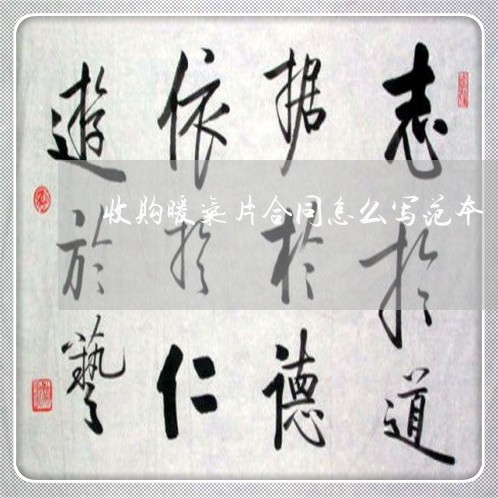 志於道
据於德
依於仁
遊於藝
收购暖氣片合同怎么写范本